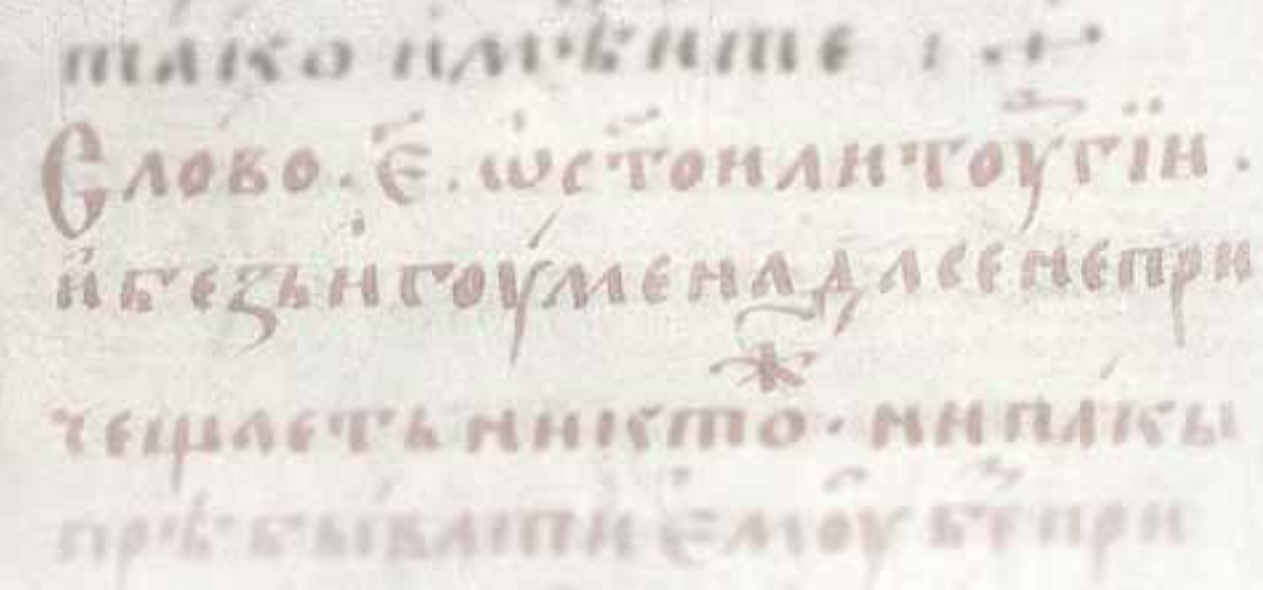 тако имѣите :
Слово · є҃ · ѡ ст҃ои литоургїи ·
и безь игоумена да се не при
чещаеть никтоⷤ · ни пакы
прѣбывати ємоу бе при